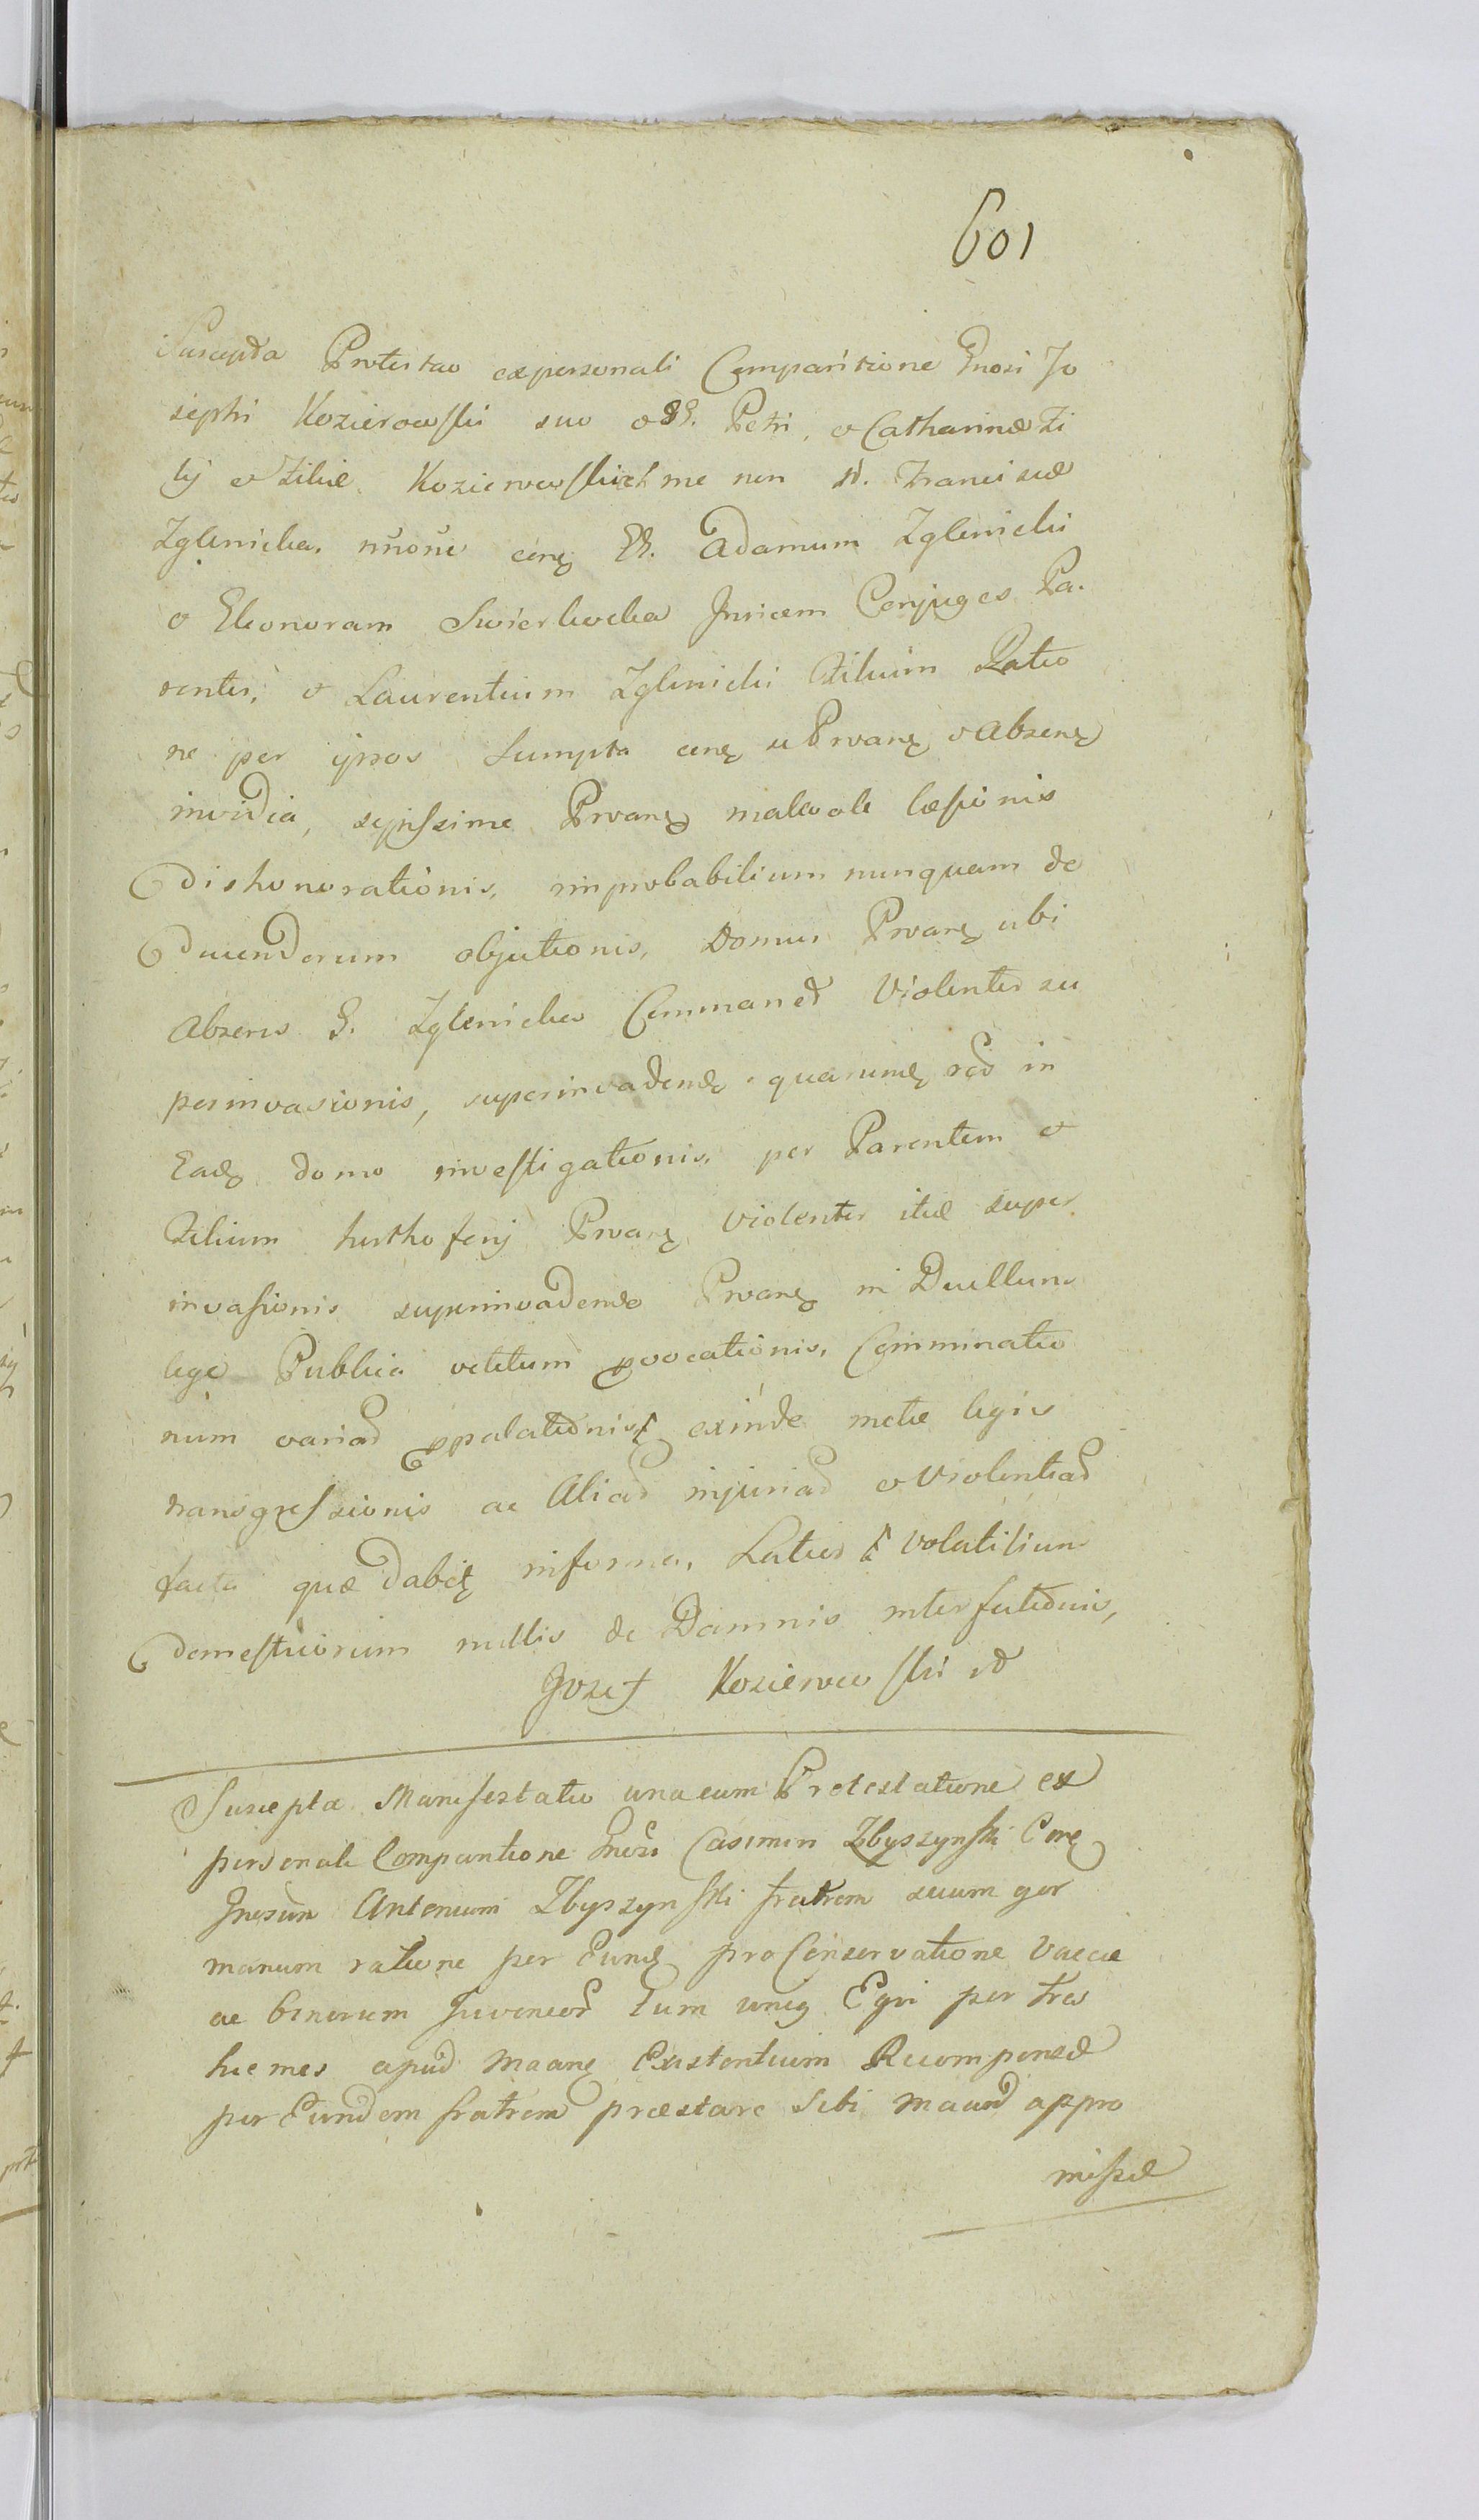 601
Suscepta Protestao ex personali Comparitione Gnosi Jo
sephi Kozierowski suo et GG. Petri, et Catharinæ Fi
lij et Filiæ Kozierowskich me non G. Franciscæ
Zglenicka, nnone cong GG. Adamum Zglenicki
et Eleonoram Swierkocka Invicem Conjuges Pa.
rentes, et Laurentium Zglenicki Filium Ratio
ne per ipsos Sumpta cong se Prvang et Abseng
invidia, sepissime Prvang malevole læsionis
dishonorationis, improbabilium nunquam de
ducendorum objectionis, Domus Prvang ubi
Absens G. Zglenicka Commanet Violenter su
perinvasionis, superinvadendo quarumq red in
Eadg domo investigationis, per Parentem et
Filium Prvang violenter itue super
invasionis superinvadendo Prvang in Duellum
lege Publica vetitum provocationis, Comminatio
num variar propalationisq exinde metæ legis
transgressionis ac Aliar injuriar et Violentiar
facta quæ dabitq informa, Latius et volatilium
domesticorum nullis de Damnis interfectionis,
Jozef Kozierowski
Suscepta Manifestatio unacum Protestatione ex
personali Comparitione Gnosi Casimiri Zbyszynski Cong
Gnosum Antonium Zbyszynski fratrem suum ger
manum ratione per Eundg pro Conservatione Vaccæ
ac binorum Juvencor tum uniq Equi per tres
hiemes apud Maang Existentium Recompensæ
per Eundem fratrem præstare sibi Maand appro
missæ